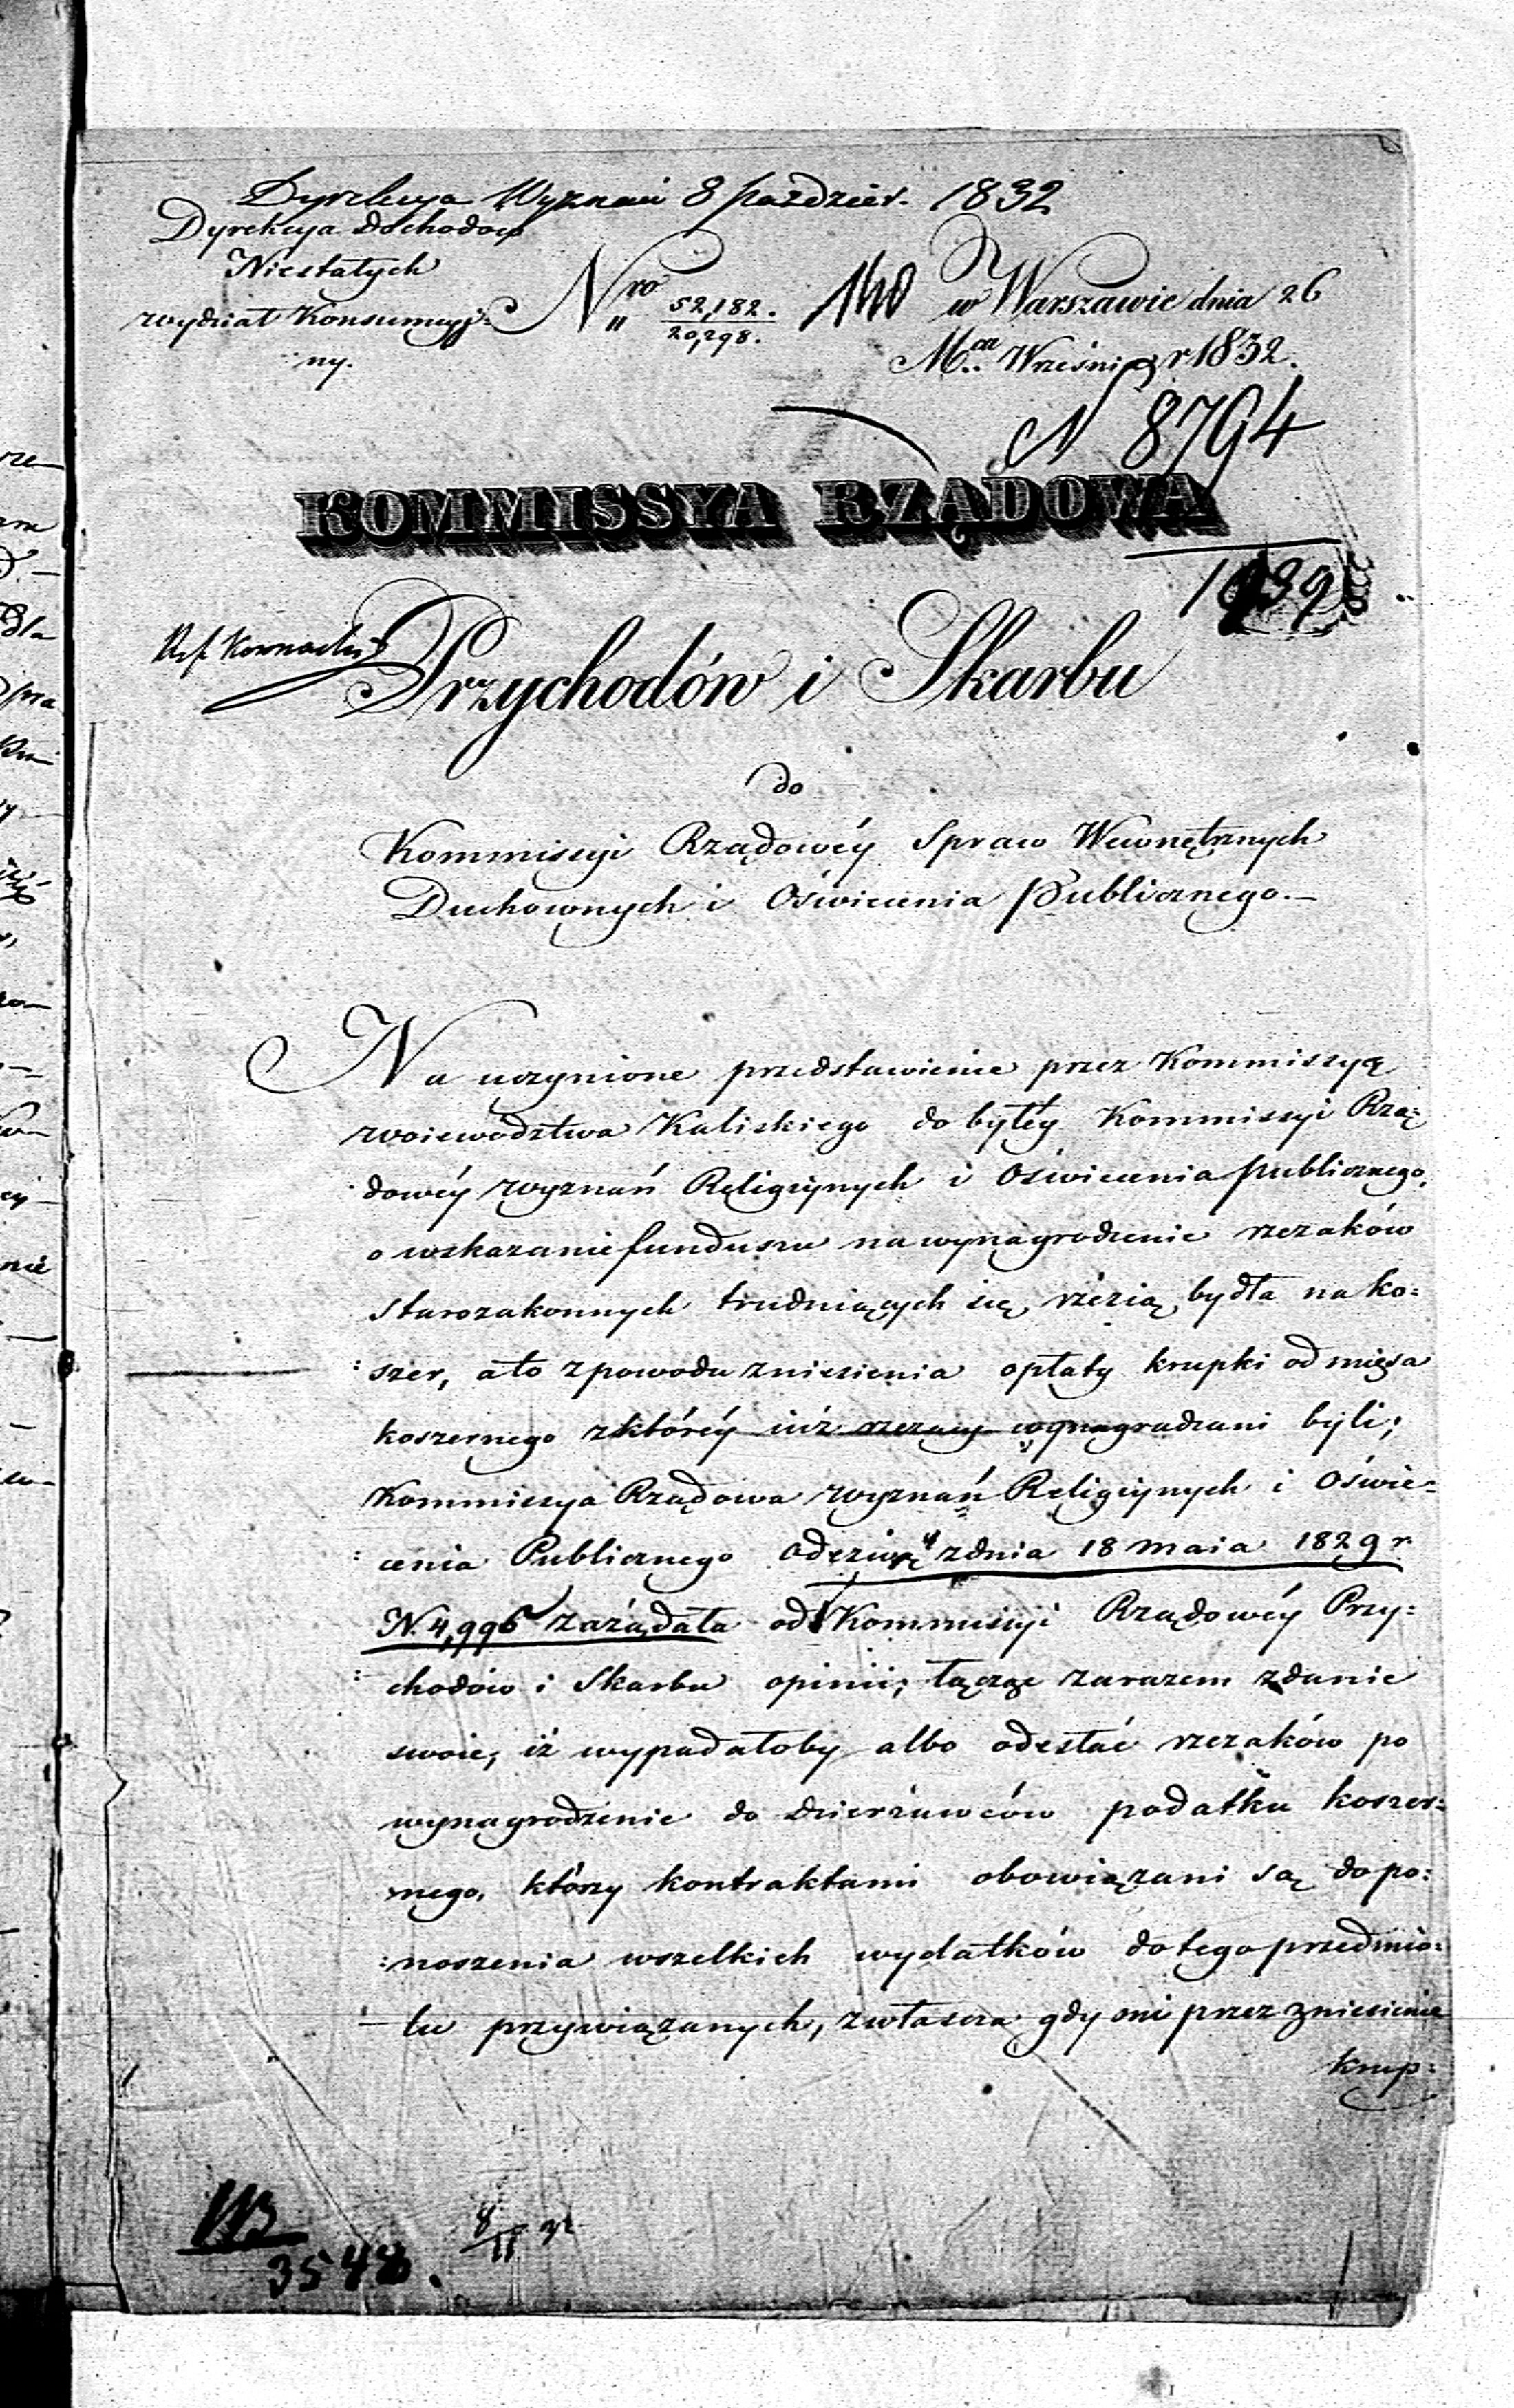 Dyrekcya Wyznań 8 Paździer. 1832
Dyrekcya Dochodow
Niestałych
wydział Konsumcyj:
ny.
Nro 52,182.
20,298.
140
w Warszawie dnia 26
Mca Września r 1832.
N 8794
KOMMISSYA RZĄDOWA
Przychodów i Skarbu
do
Kommissyi Rządowéy Spraw Wewnętrznych
Duchownych i Oświecenia Publicznego.—
Na uczynione przedstawienie przez Kommissyę
woiewództwa Kaliskiego do byłéy Kommissyi Rzą:
dowéy wyznań Religiynych i Oświecenia publicznego,
o wskazanie funduszu na wynagrodzenie rzezaków
starozakonnych trudniących się rzezią bydła na ko:
:szer, a to z powodu zniesienia opłaty krupki od mięsa
koszernego z któréy iuż rzezacy wynagradzani byli;
Kommissya Rządowa wyznań Religiynych i Oświe:
:cenia Publicznego odezwą z dnia 18 maia 1829 r
N. 4,996 zażądała od Kommissyi Rządowéy Przy:
:chodów i Skarbu opinii, łącząc zarazem zdanie
swoie, iż wypadałoby albo odesłać rzezaków po
wynagrodzenie do dzierżawców podatku koszer:
nego, którzy kontraktami obowiązani są do po:
:noszenia wszelkich wydatków do tego przedmio:
tu przywiązanych, zwłaszcza gdy oni przez zniesienie
krup:
3548.
8/11 32